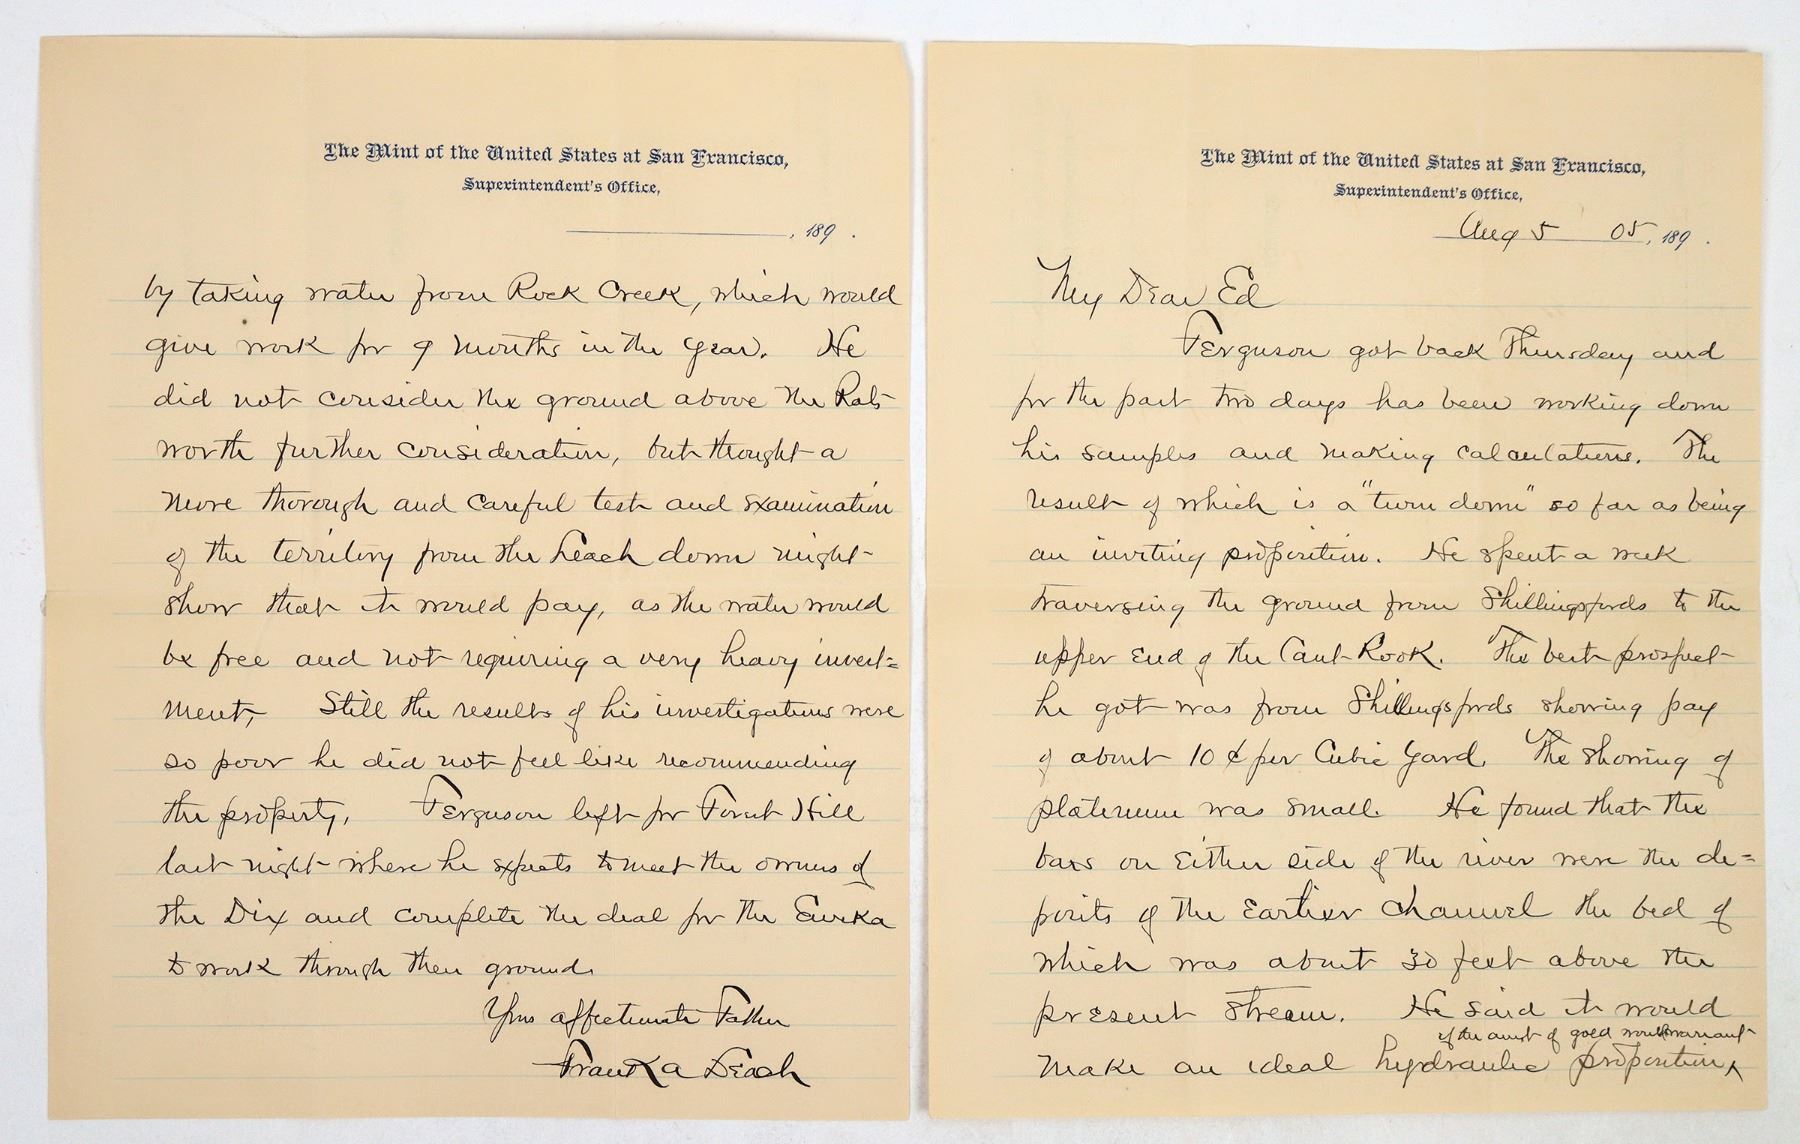 The Mint of the United States at San Francisco,
Superintendent's Office,
Aug 5 05, 189 .
My Dear Ed
Ferguson got back Thursday and
for the past two days has been working down
his samples and making calculations. The
result of which is a "turn down" so far as being
an inviting proposition. He spent a week
traversing the ground from Shillingsfords to the
upper end of the Cant Rook. The best prospect
he got was from Shillingsfords showing pay
of about 10 ¢ per Cubic Yard. The showing of
platinum was small. He found that the
bars on either side of the river were the de=
posits of the Earlier Channel the bed of
which was about 30 feet above the
present stream. He said it would
if the amt of gold would warrant
make an ideal hydraulic proposition ^
The Mint of the United States at San Francisco,
Superintendent's Office,
, 189 .
by taking water from Rock Creek, which would
give work for 9 months in the year. He
did not consider the ground above the
worth further consideration, but thought a
more thorough and careful test and examination
of the territory from the Leach down might
show that it would pay, as the water would
be free and not requiring a very heavy invest=
ment, Still the results of his investigations were
so poor he did not feel like recommending
the property. Ferguson left for Forest Hill
last night where he expects to meet the owners of
the Dix and complete the deal for the Eureka
to work through their ground.
Your affectionate Father
Frank A Leach